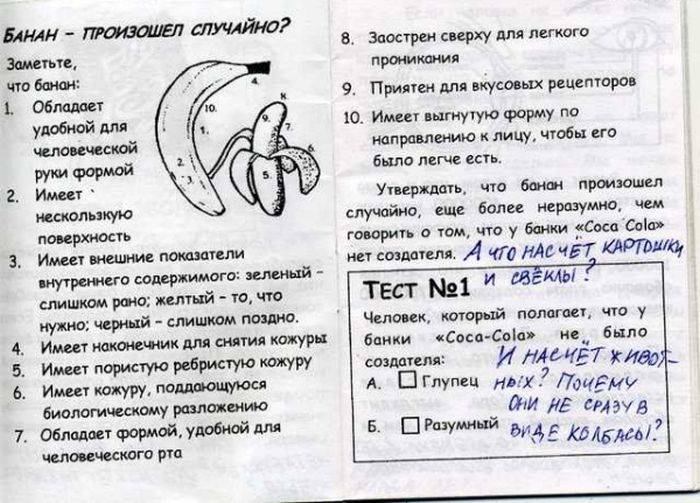 БАНАН – ПРОИЗОШЕЛ СЛУЧАЙНО?
Заметьте,
что банан:
1. Обладает
удобной для
человеческой
руки формой
2. Имеет
нескользкую
поверхность
3. Имеет внешние показатели
внутреннего содержимого: зеленый –
слишком рано; желтый – то, что
нужно; черный – слишком поздно.
4. Имеет наконечник для снятия кожуры
5. Имеет пористую ребристую кожуру
6. Имеет кожуру, поддающуюся
биологическому разложению
7. Обладает формой, удобной для
человеческого рта
4.
10.
1.
2.
3.
8.
9.
7.
6.
5.
8. Заострен сверху для легкого
проникания
9. Приятен для вкусовых рецепторов
10. Имеет выгнутую форму по
направлению к лицу, чтобы его
было легче есть.
Утверждать, что банан произошел
случайно, еще более неразумно, чем
говорить о том, что у банки «Coca Cola»
нет создателя. А ЧТО НАСЧЁТ КАРТОШКИ
И СВЁКЛЫ?
ТЕСТ №1
Человек, который полагает, что у
банки «Coca-Cola» не было
создателя: И НАСЧЁТ ЖИВОТ-
А. Глупец НЫХ? ПОЧЕМУ
ОНИ НЕ СРАЗУ В
Б. Разумный ВИДЕ КОЛБАСЫ?